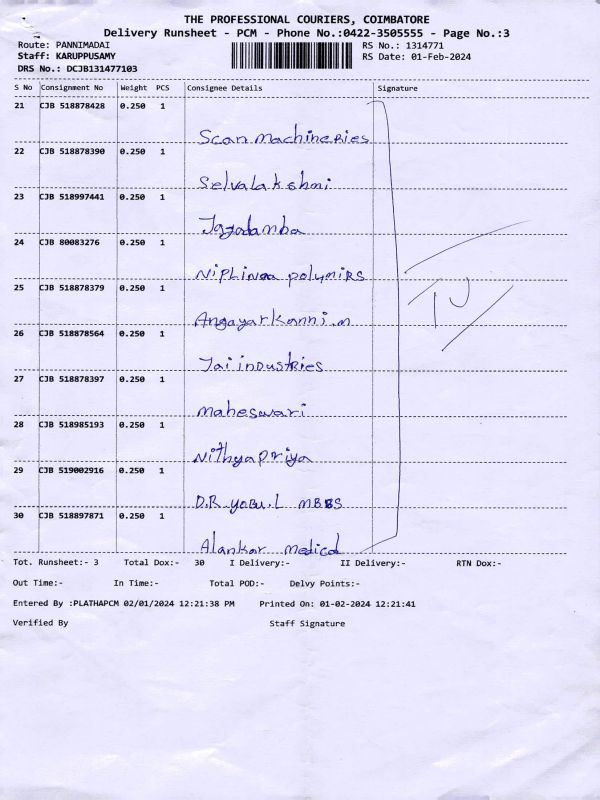 THE PROFESSIONAL COURIERS, COIMBATORE
Delivery Runsheet - PCM - Phone No.:0422-3505555 - Page No.:3
Route: PANNIMADAI
RS No.: 1314771
Staff: KARUPPUSAMY
RS Date: 01-Feb-2024
DRS No.: DCJB131477103
S No Consignment No Weight PCS Consignee Details Signature
21 CJB 518878428 0.250 1
Scan machineries
22 CJB 518878390 0.250 1
Selvalakshmi
23 CJB 518997441 0.250 1
Jagadamba
24 CJB 80083276 0.250 1
polymIRS
25 CJB 518878379 0.250 1
Angayarkanni.m
26 CJB 518878564 0.250 1
Jai industries
27 CJB 518878397 0.250 1
maheswari
28 CJB 518985193 0.250 1
Nithyapriya
29 CJB 519002916 0.250 1
D.R MBBS
30 CJB 518897871 0.250 1
Alankar medical
Tot. Runsheet:- 3 Total Dox:- 30 I Delivery:- II Delivery:- RTN Dox:-
Out Time:- In Time:- Total POD:- Delvy Points:-
Entered By :PLATHAPCM 02/01/2024 12:21:38 PM Printed On: 01-02-2024 12:21:41
Verified By Staff Signature